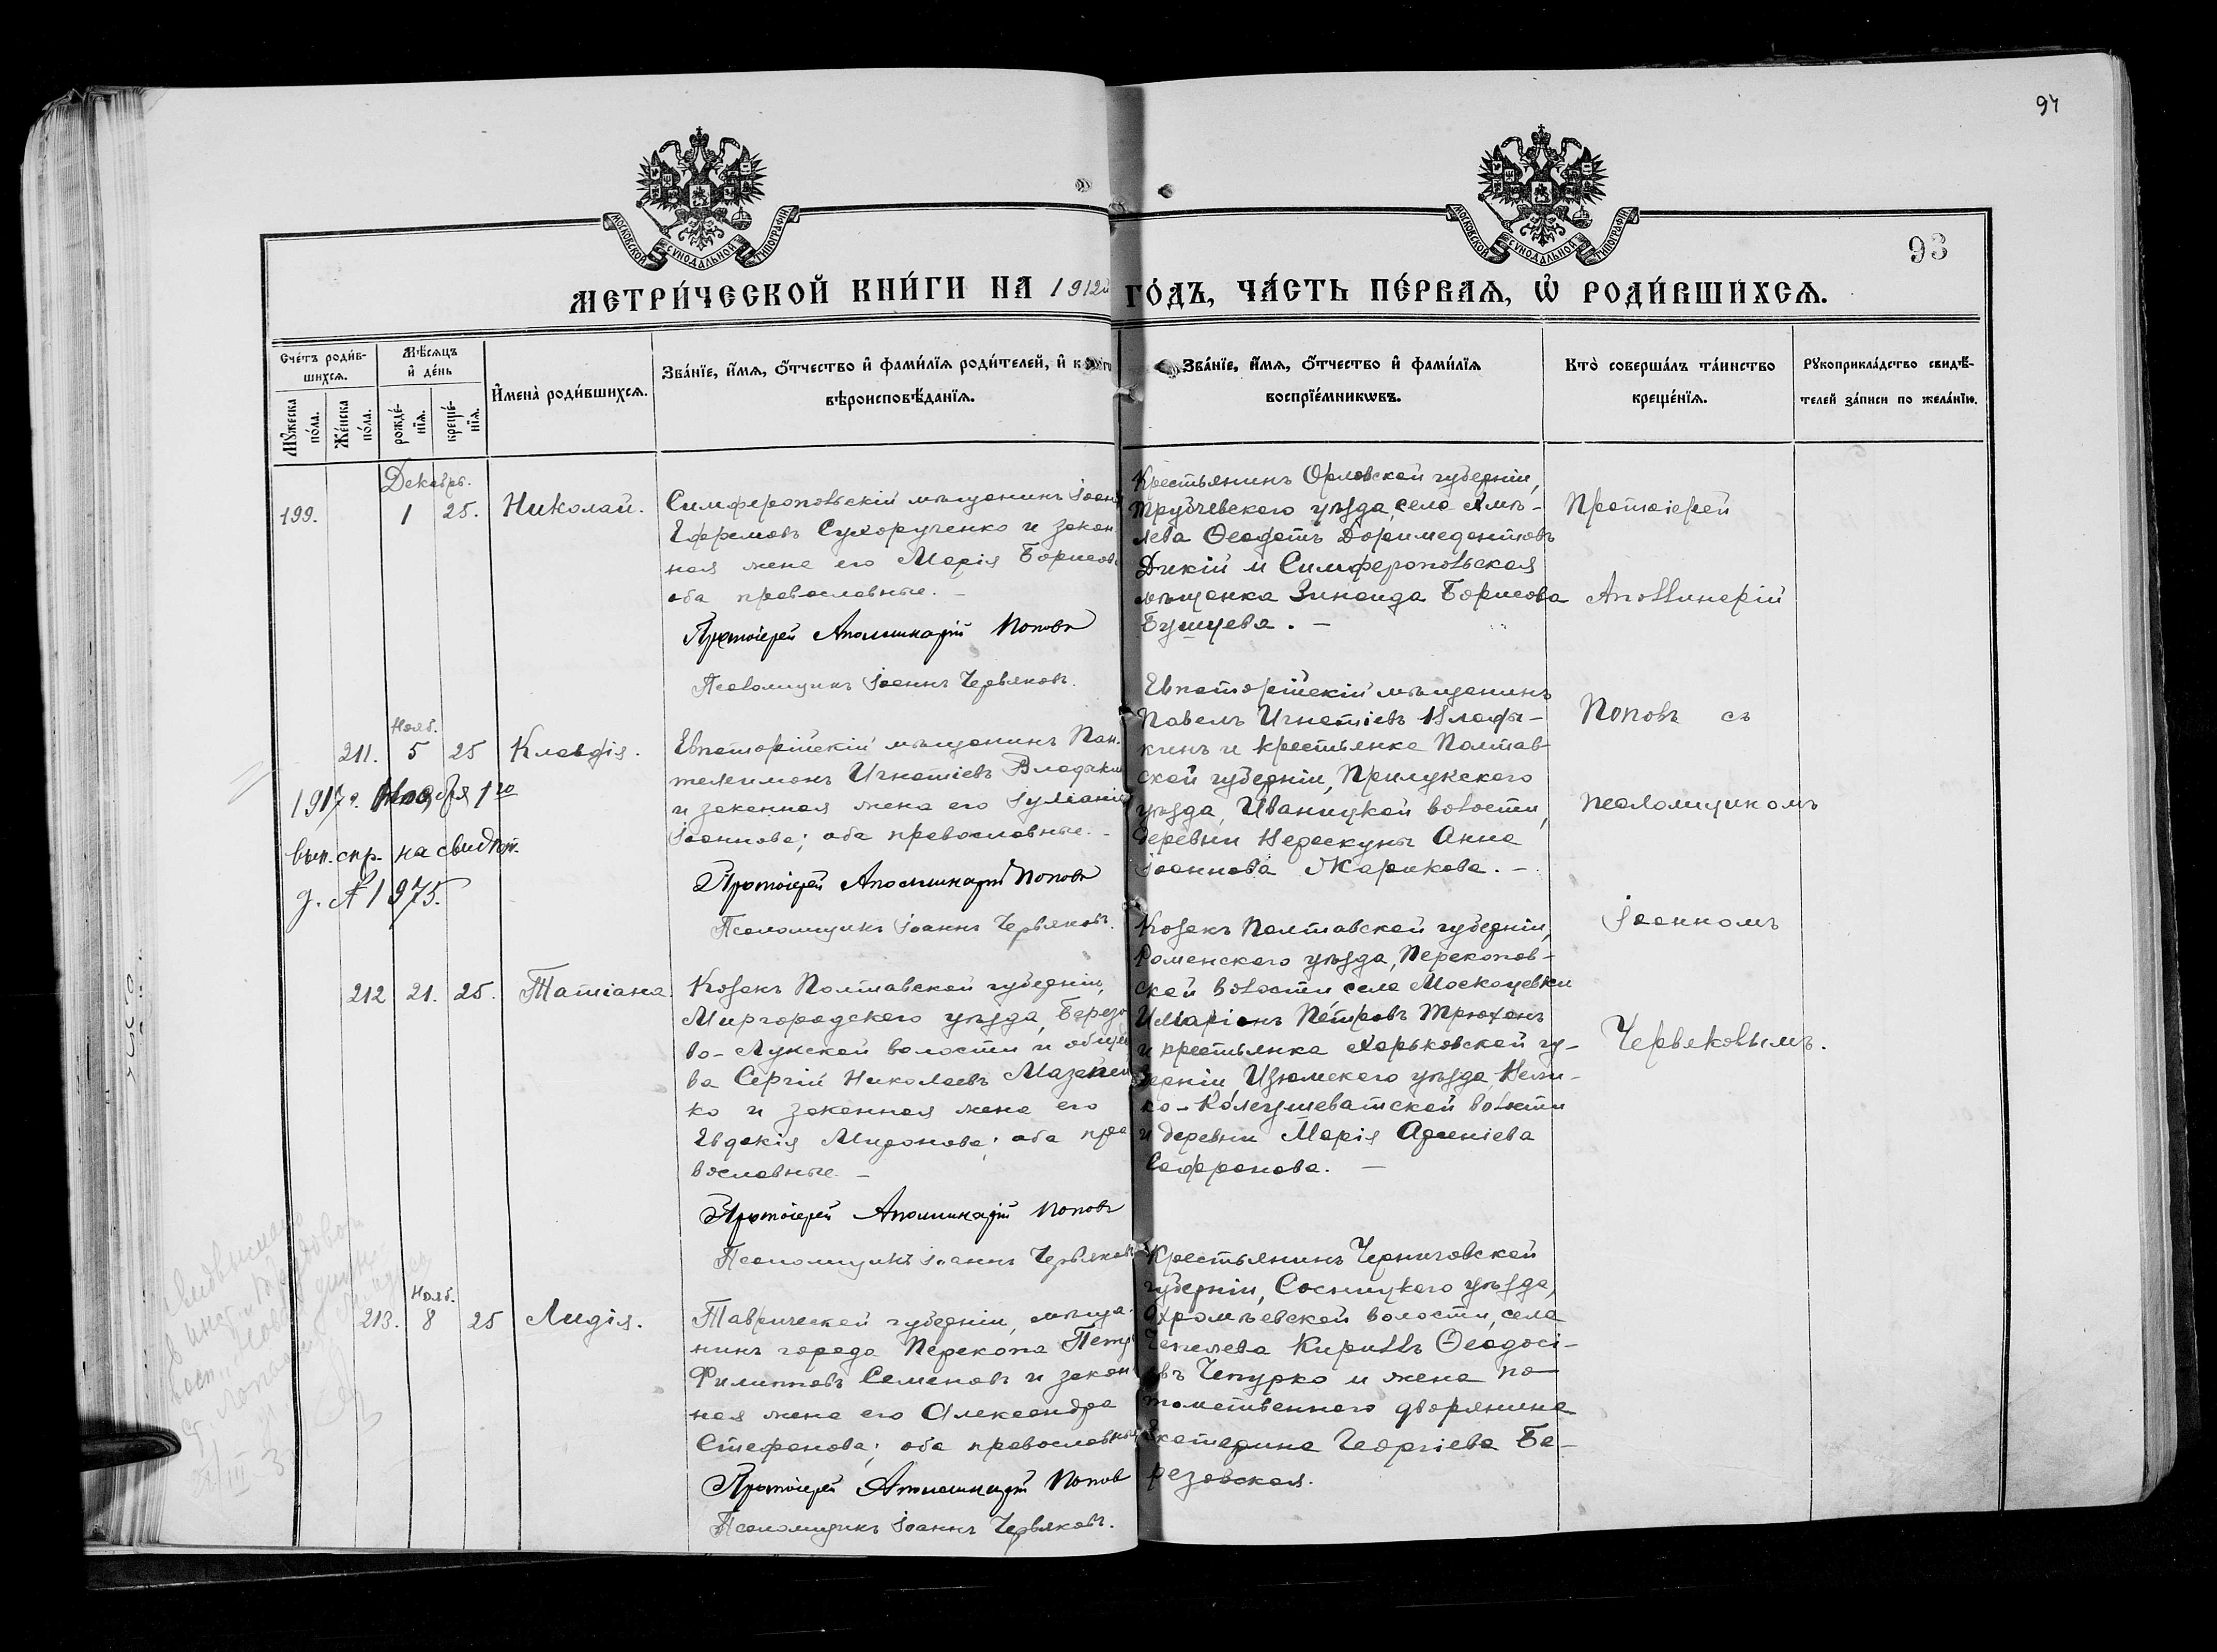 94
93
МОСКОВСКОЙ СѴНОДАЛЬНОЙ ТИПОГРАФІИ
МОСКОВСКОЙ СѴНОДАЛЬНОЙ ТИПОГРАФІИ
МЕТРИ́ЧЕСКОЙ КНИ́ГИ НА 1912й ГО́ДЪ, ЧА́СТЬ ПЕ́РВАѦ, Ѡ҆ РОДИ́ВШИХСѦ.
Сче́тъ роди́в-
шихсѧ.
Мꙋ́жеска по́ла.
Же́нска по́ла.
Мѣ́сѧцъ и҆ де́нь
рожде́-нїѧ.
креще́-нїѧ.
И҆мена̀ роди́вшихсѧ.
Зва́нїе, и҆́мѧ, ѻ҆́тчество и҆ фами́лїѧ роди́телей, и҆
вѣроисповѣ́данїѧ.
Зва́нїе, и҆́мѧ, ѻ҆́тчество и҆ фами́лїѧ
воспрїе́мникѡвъ.
Кто̀ соверша́лъ та́инство
креще́нїѧ.
Рꙋкоприкла́дство свидѣ́-
телей за́писи по жела́нїю.
Декабрь.
199.
1
25.
Николай.
Симферопольскій мѣщанинъ Іоаннъ
Ефремовъ Сухорученко и закон
ная жена его Марія Борисова
оба православные. –
Протоіерей Аполлинарій Поповъ
Псаломщикъ Іоаннъ Червяковъ.
Крестьянинъ Орловской губерніи,
Трубчевскаго уѣзда, села
Ѳеодотъ Доримедонтовъ
Дикій и Симферопольская
мѣщанка Зинаида Борисова
Бушуева. –
Нояб.
211.
5
25
Клавдія.
Евпаторійскій мѣщанинъ Пан-
телеимонъ Игнатіевъ Владыкинъ
и законная жена его Іуліанія
Іоаннова; оба православные. –
Протоіерей Аполлинарій Поповъ
Псаломщикъ Іоаннъ Червяковъ.
Евпаторійскій мѣщанинъ
Павелъ Игнатіевъ Влады-
кинъ и крестьянка Полтав-
ской губерніи, Прилукскаго
уѣзда, Иваницкой волости,
деревни Анна
Іоаннова Жарикова. –
1917 г. Ноября 1го
вып. спр. на свидѣт.
№ 1975.
212
21.
25.
Татіана
Козакъ Полтавской губерніи,
Миргородскаго уѣзда, Березо
во-Лукской волости и общест
ва Сергій Николаевъ Мазапен
ко и законная жена его
Евдокія Миронова; оба пра
вославные. –
Протоіерей Аполлинарій Поповъ
Псаломщикъ Іоаннъ Червяковъ
Козакъ Полтавской губерніи,
Роменскаго уѣзда, Перекопов-
ской волости села
Иларіонъ Петровъ Трюханъ
и крестьянка Харьковской гу-
берніи Изюмскаго уѣзда,
волости
и деревни Марія
Сафронова. –
Нояб.
213.
8
25
Лидія.
Таврической губерніи, мѣща-
нинъ города Перекопа Петръ
Филипповъ Семеновъ и закон
ная жена его Александра
Стефанова; оба православные
Протоіерей Аполлинарій Поповъ
Псаломщикъ Іоаннъ Червяковъ.
Крестьянинъ Черниговской
губерніи, Сосницкаго уѣзда,
Охромѣевской волости, села
Чепелева Кириллъ Ѳеодосі-
евъ Чепурко и жена по-
томственнаго дворянина
Екатерина Георгіева Бе-
резовская.
Протоіерей
Аполлинарій
Поповъ съ
псаломщикомъ
Іоанномъ
Червяковымъ.